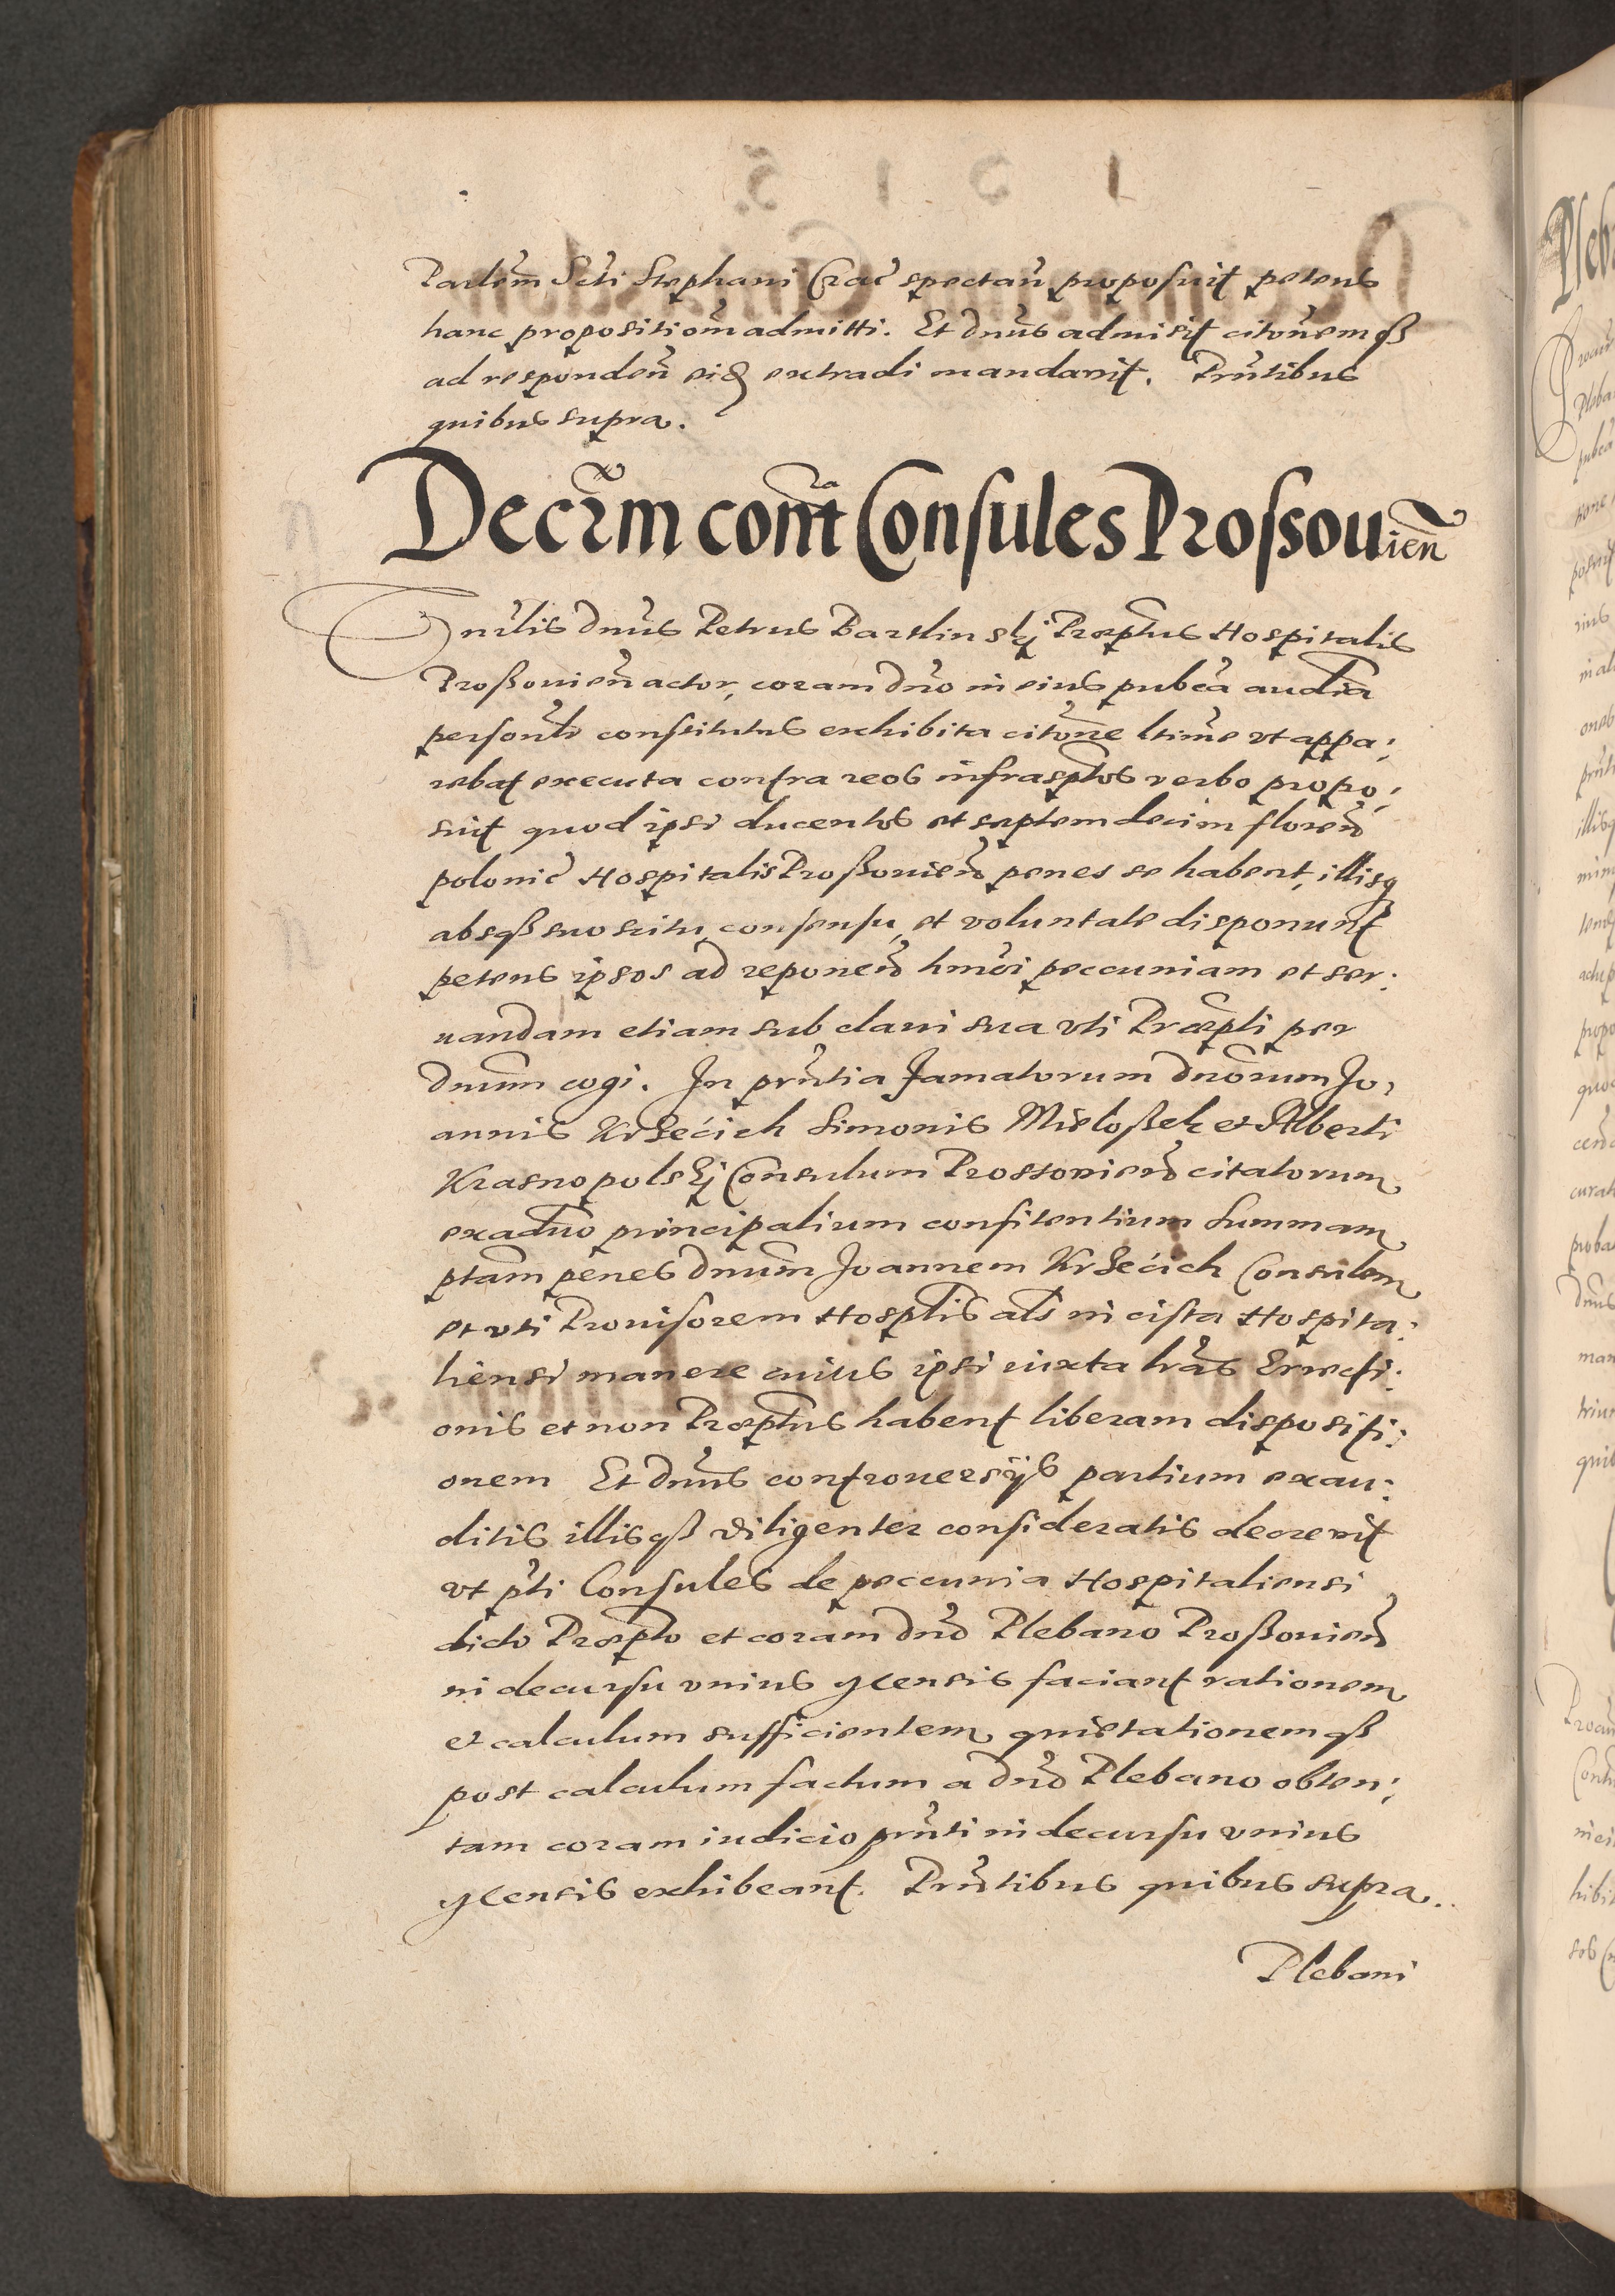 Partem Scti Stephani Crac̃ spectan̄ proposuit petens
hanc propositiom̃ admitti. Et dnũs admisit citõnemqß
ad responden̄ eisd extradi mandavit. Prñtibus
quibus supra.
Decr̃m cont̃ra Consules Proſsouien̄
Hnrl̃is Dnũs Petrus Bartlinskj Praeptus Hospitalis
Proßouien̄ actor, coram Dnõ in eius pubcã audĩa
personl̃r constitutus exhibita citõne ltime vt appa:
rebat executa contra reos infrasptos verbo propo:
suit quod ipsi ducentos et septemdecim floren̄
polonic̃ Hospitalis Proßouien̄ penes se habent, illisq
absqß suo scitu consensu, et voluntate disponunt
petens ipsos ad reponen̄ hmõi peccuniam et ser:
uandam etiam sub claui sua vti Praepti per
Dnum cogi. In prñtia famatorum Dnõrum Jo,
annis Krżecich Simonis Mieloßek et Alberti
Krasnopolskj Consulum Prossouien̄ citatorum
exaduo principalium confitentium summam
ptam penes Dnum̃ Joannem Krżecich Consulem
et vti Prouisorem Hosplis als in cista Hospita:
liensi manere cuius ipsi iuxta lrãs Erecti:
onis et non Praeptus habent liberam dispositi:
onem Et Dnũs controuersijs partium exau:
ditis illisqß diligenter consideratis decrevit
vt pti Consules de peccunia Hospitaliensi
dicto Praepto et coram Dnõ Plebano Proßouien̄
in decursu vnius mensis faciant rationem
et calculum sufficientem quietationemqß
post calculum factum a Dnõ Plebano obten:
tam coram iudicio prñti in decursu vnius
mensis exhibeant. Prñtibus quibus supra.
Plebani